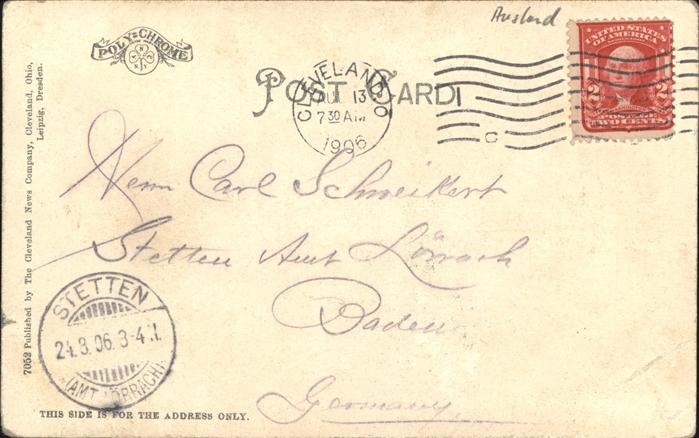 Ausland
POLY-CHROME
UNITED STATES
OF AMERICA
2 2
TWO CENTS
POST CARD
CLEVELAND, O
13
7 30 AM
1906
C
Herrn Carl Schweikert
Stetten Amt Lörrach
Baden
Germany.
STETTEN
24.8.06.3-4
(AMT LÖRRACH)
7052 Published by The Cleveland News Company, Cleveland, Ohio,
Leipzig, Dresden.
THIS SIDE IS FOR THE ADDRESS ONLY.